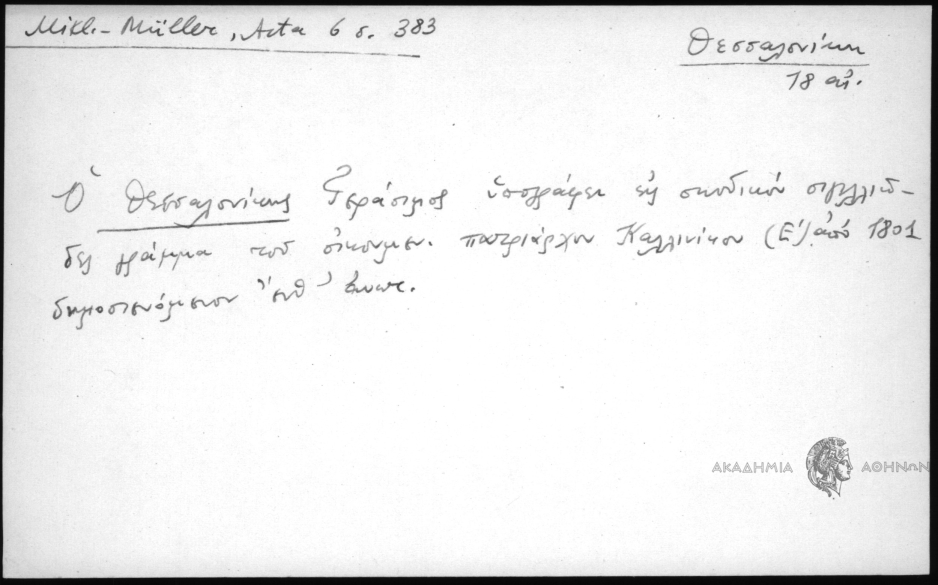 Mikl.- Müller, Acta 6 σ. 383
Θεσσαλονίκη
18 αἰ.
Ὁ Θεσσαλονίκης Γεράσιμος ὑπογράφει εἰς συνοδικὸν σιγιλλιῶ-
δες γράμμα τοῦ οἰκουμεν. πατριάρχου Καλλινίκου (Ε') ἀπὸ 1801
δημοσιευόμενον ἐνθ' ἀνωτ.
ΑΚΑΔΗΜΙΑ ΑΘΗΝΩΝ